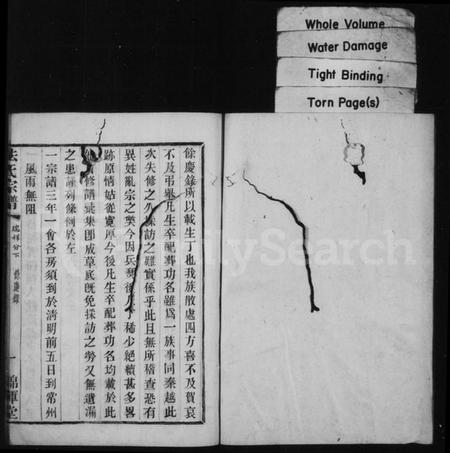 Whole Volume
Water Damage
Tight Binding
Torn Page(s)
餘慶錄所以載生丁也我族散處四方喜不及賀哀
不及弔畢凡生卒配葬功名雖爲一族事同秦越此
次失修之久採訪之難實係乎此且無所稽查恐有
異姓亂宗之弊今因兵燹後丁稀少絶續甚多畧
跡原情姑從寬厚今後凡生卒配葬功名均載於此
修譜彙集即成草底既免採訪之勞又無遺漏
之患謹列條例於左
一宗譜三年一會各房須到於清明前五日到常州
風雨無阻
氏宗譜
瑞祥分下
餘慶錄
一
錦軍堂
FamilySearch